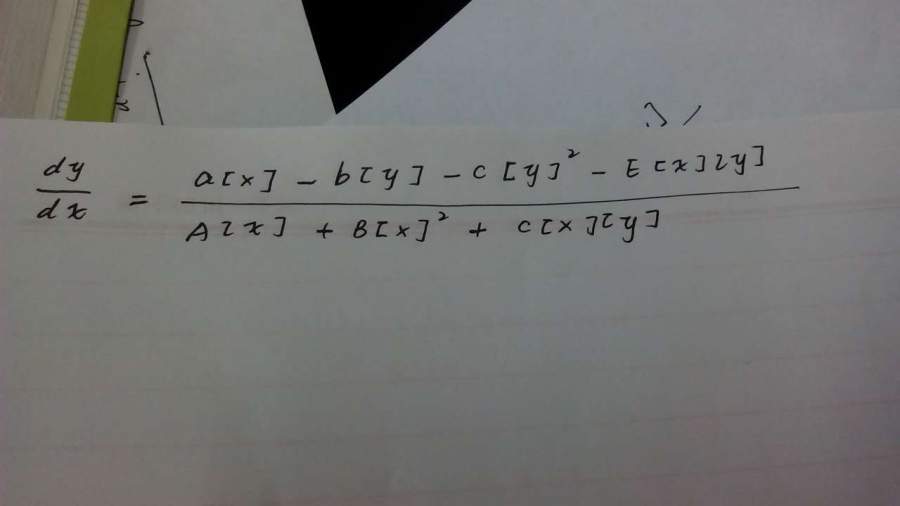 dy/dx = (a[x] - b[y] - c[y]² - E[x][y]) / (A[x] + B[x]² + C[x][y])